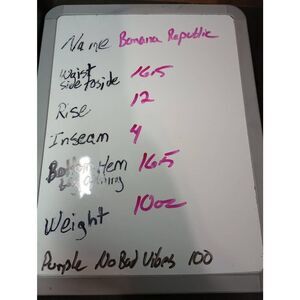 Name Banana Republic
Waist side to side 16.5
Rise 12
Inseam 4
Bottom Hem 16.5
Leg Opening
Weight 10oz
Purple No Bad Vibes 100